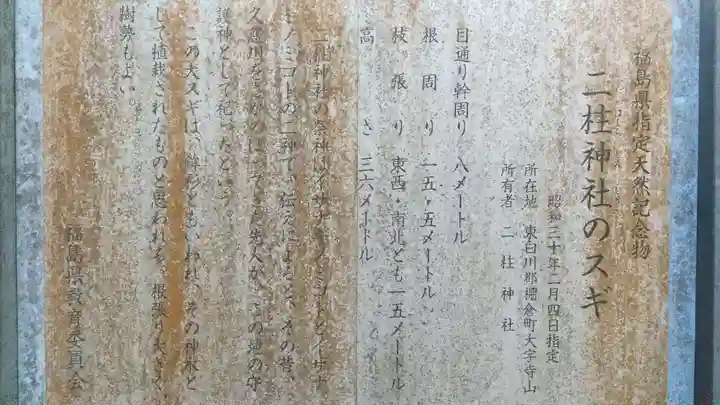 福島県指定天然記念物
二柱神社のスギ
昭和三十年二月四日指定
所在地 東白川郡棚倉町大字寺山
所有者 二柱神社
目通り幹周り 八メートル
根周り 一五・五メートル
枝張り 東西・南北とも一五メートル
高さ 三六メートル
二柱神社の祭神はイザナギノミコトとイザナ
ミノミコトの二神で、伝えによると、その昔、
久慈川をさかのぼってきた先人が、この地の守
護神として祀ったという。
この大スギは、鉾杉ともいわれ、その神木と
して植栽されたものと思われる。根張り大きく、
樹勢もよい。
福島県教育委員会